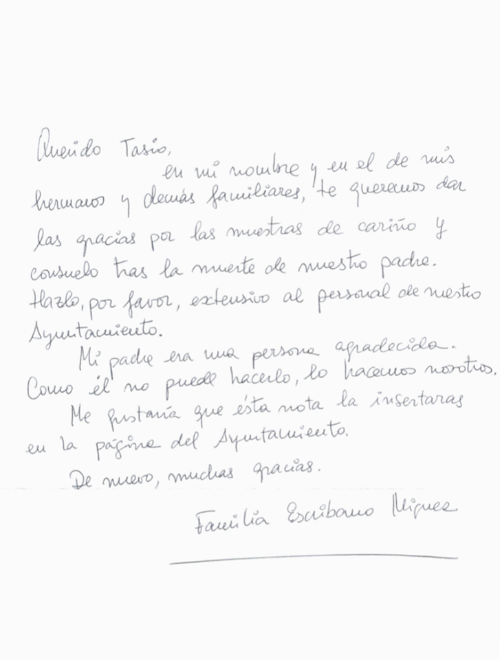 Querido Tasio,
en mi nombre y en el de mis
hermanos y demás familiares, te queremos dar
las gracias por las muestras de cariño y
consuelo tras la muerte de nuestro padre.
Hazlo, por favor, extensivo al personal de nuestro
Ayuntamiento.
Mi padre era una persona agradecida.
Como él no puede hacerlo, lo hacemos nosotros.
Me gustaría que ésta nota la insertaras
en la página del Ayuntamiento.
De nuevo, muchas gracias.
Familia Escribano Míguez